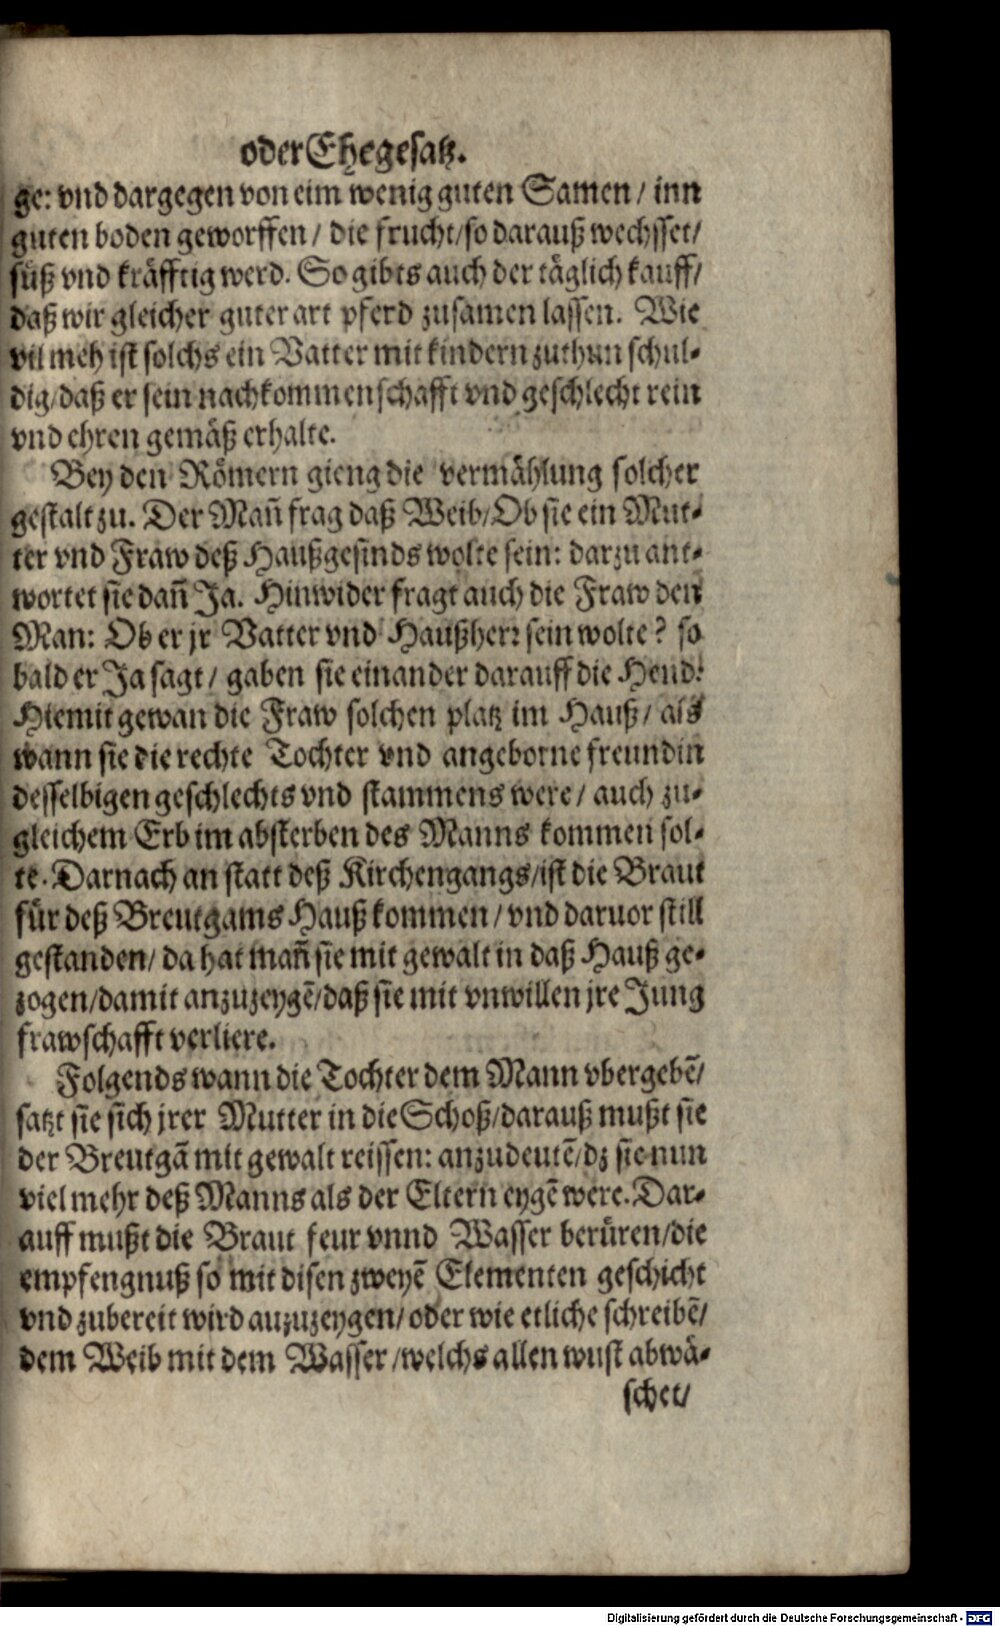 oder Ehegesatz.
ge: vnd dargegen von eim wenig guten Samen / inn
guten boden geworffen / die frucht / so darauß wechsset /
süß vnd kräfftig werd. So gibts auch der täglich kauff /
daß wir gleicher guter art pferd zusamen lassen. Wie
vil meh ist solchs ein Vatter mit kindern zuthun schul-
dig / daß er sein nachkommenschafft vnd geschlecht rein
vnd ehren gemäß erhalte.
Bey den Römern gieng die vermählung solcher
gestalt zu. Der Mañ frag daß Weib / Ob sie ein Mut-
ter vnd Fraw deß Haußgesinds wolte sein: darzu ant-
wortet sie dañ Ja. Hinwider fragt auch die Fraw den
Man: Ob er jr Vatter vnd Haußherr sein wolte? so
bald er Ja sagt / gaben sie einander darauff die Hend:
Hiemit gewan die Fraw solchen platz im Hauß / als
wann sie die rechte Tochter vnd angeborne freundin
desselbigen geschlechts vnd stammens were / auch zu-
gleichem Erb im absterben des Manns kommen sol-
te. Darnach an statt deß Kirchengangs / ist die Braut
für deß Breutgams Hauß kommen / vnd daruor still
gestanden / da hat mañ sie mit gewalt in daß Hauß ge-
zogen / damit anzuzeygẽ / daß sie mit vnwillen jre Jung
frawschafft verliere.
Folgends wann die Tochter dem Mann vbergebẽ /
satzt sie sich jrer Mutter in die Schoß / darauß mußt sie
der Breutgã mit gewalt reissen: anzudeutẽ / dz sie nun
viel mehr deß Manns als der Eltern eygẽ were. Dar-
auff mußt die Braut feur vnnd Wasser berüren / die
empfengnuß so mit disen zweyẽ Elementen geschicht
vnd zubereit wird auzuzeygen / oder wie etliche schreibẽ /
dem Weib mit dem Wasser / welchs allen wust abwä-
schet /
Digitalisierung gefördert durch die Deutsche Forschungsgemeinschaft - DFG